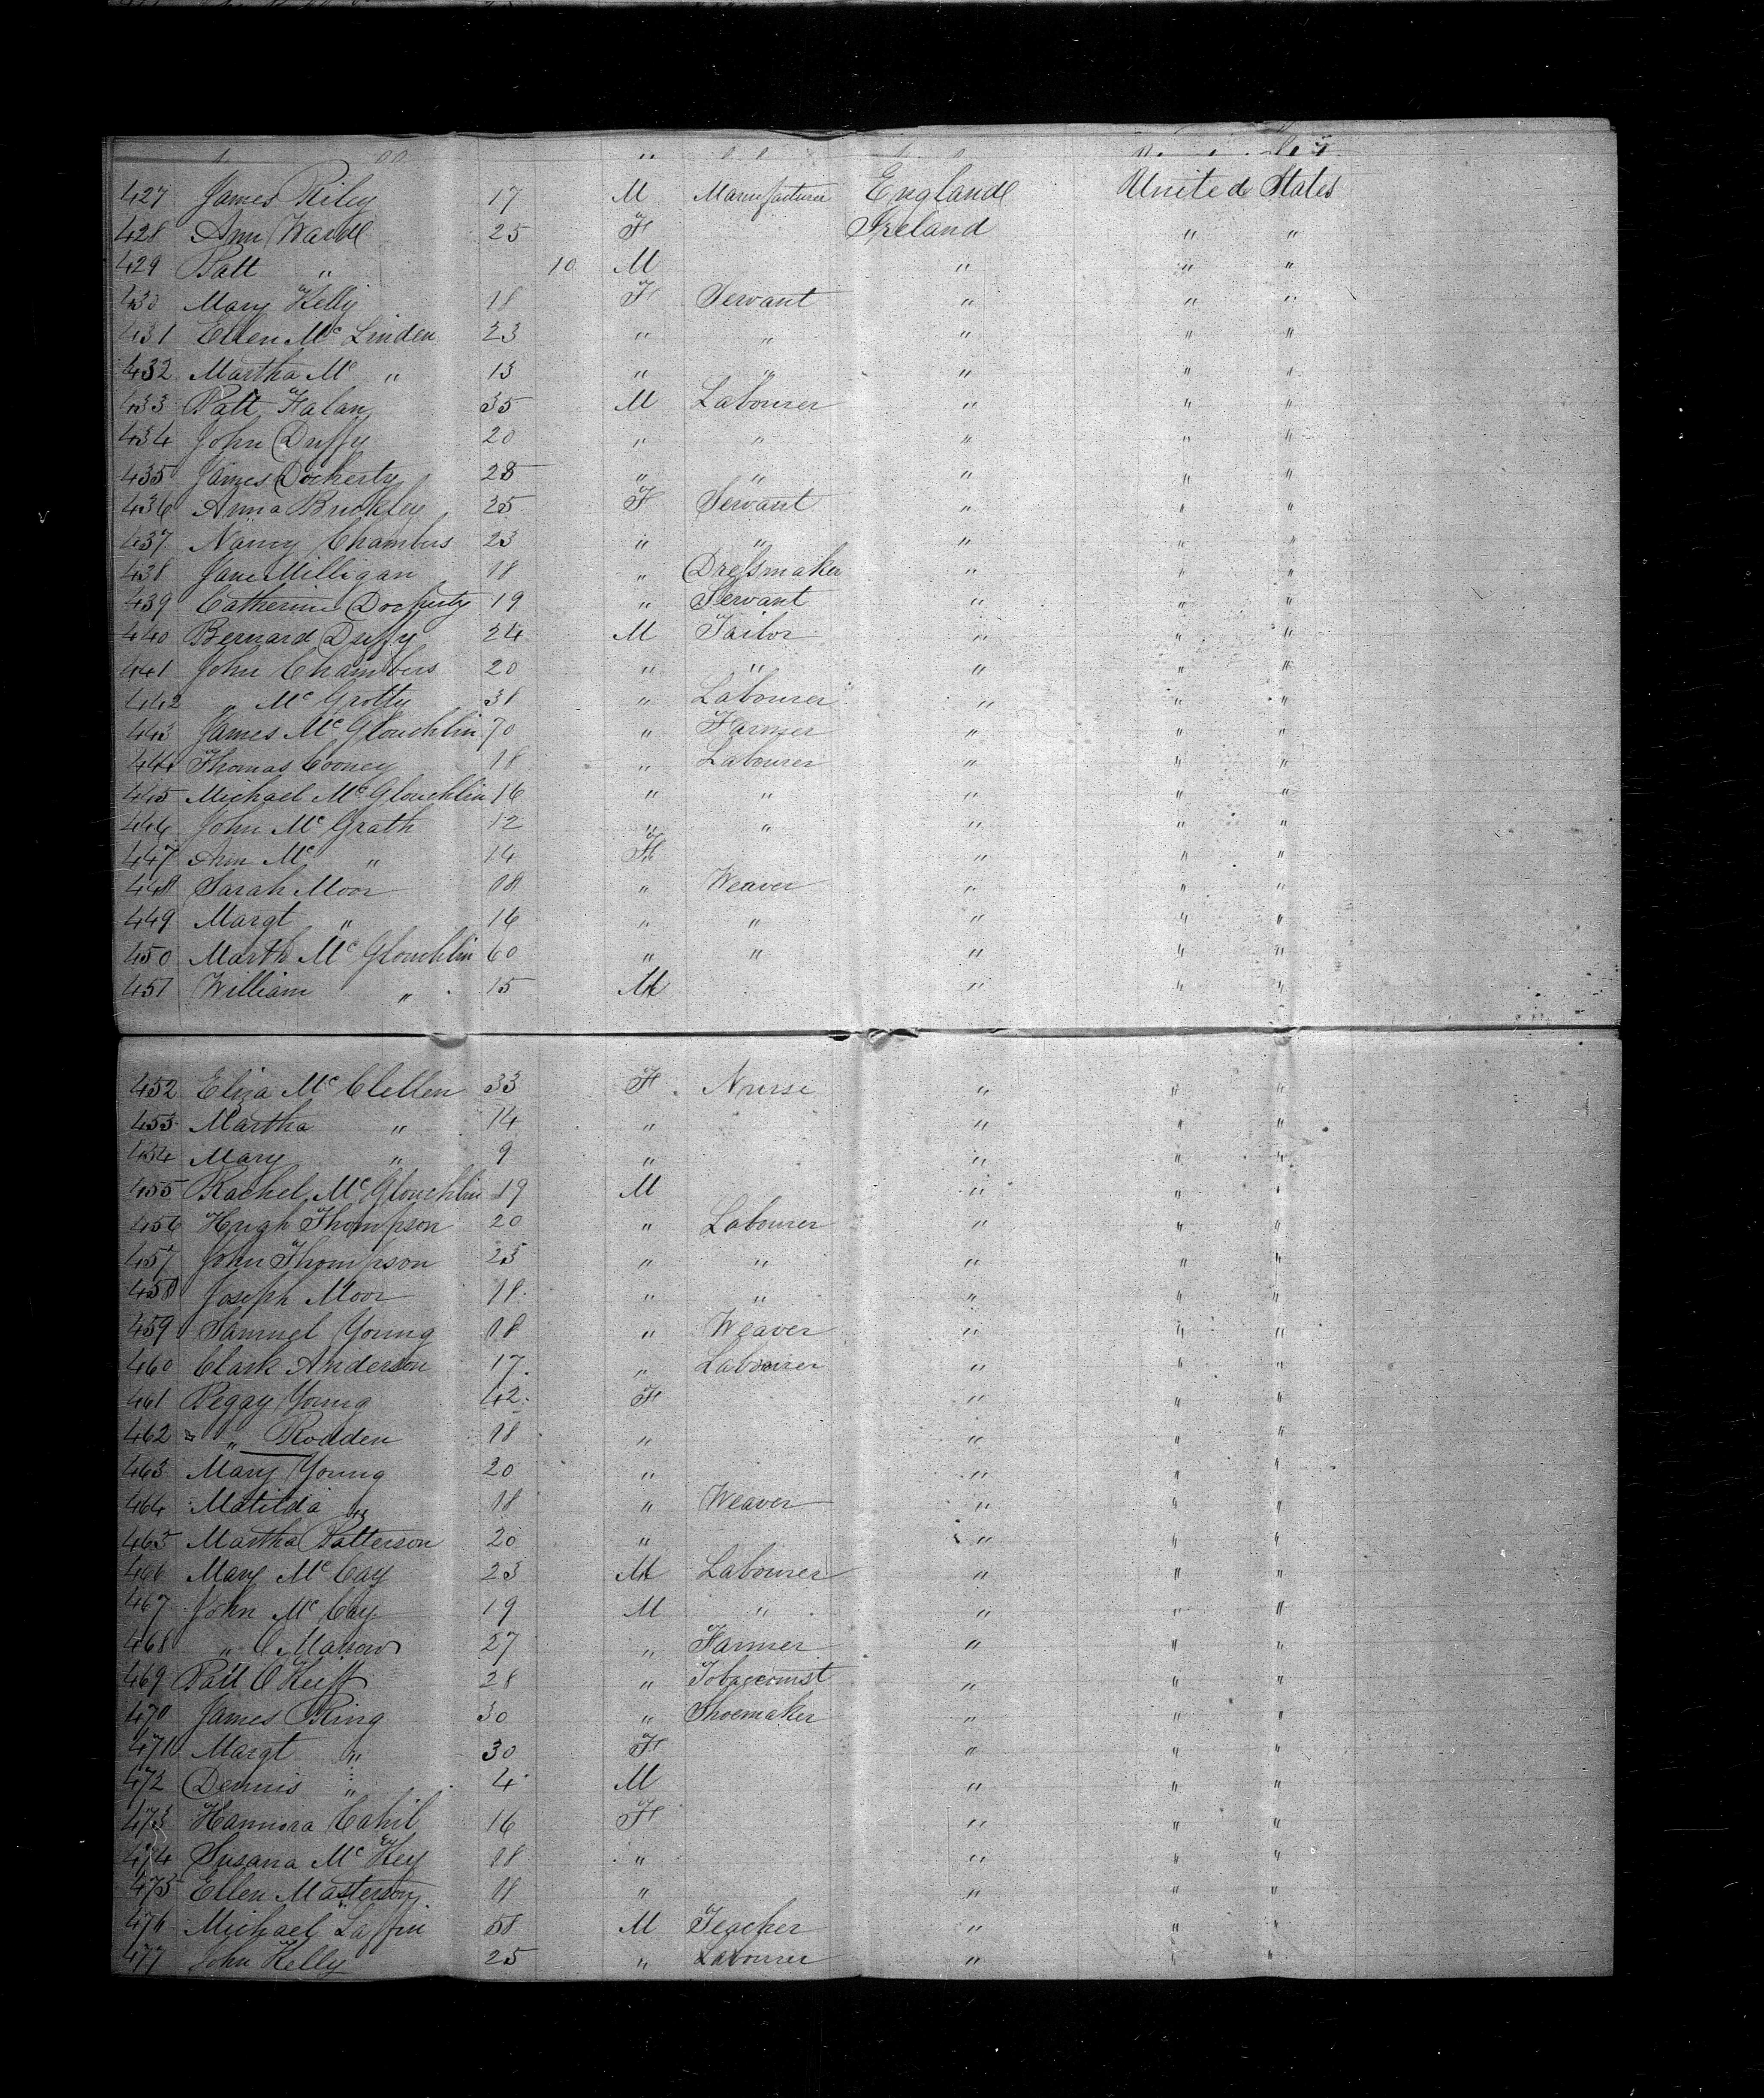 427 James Riley 17 M Manufacturer England United States
428 Ann Ward 25 F Ireland " "
429 Patt " 10 M " " "
430 Mary Kelly 18 F Servant " " "
431 Ellen Mc Linden 23 " " " " "
432 Martha Mc " 13 " " " " "
433 Patt Falan 35 M Labourer " " "
434 John Duffy 20 " " " " "
435 James Docherty 28 " " " " "
436 Anna Buckley 25 F Servant " " "
437 Nancy Chambers 23 " " " " "
438 Jane Milligan 18 " Dressmaker " " "
439 Catherine Docherty 19 " Servant " " "
440 Bernard Duffy 24 M Tailor " " "
441 John Chambers 20 " " " " "
442 " Mc Grotty 31 " Labourer " " "
443 James Mc Glouchlin 70 " Farmer " " "
444 Thomas Cooney 18 " Labourer " " "
445 Michael Mc Glouchlin 16 " " " " "
446 John Mc Grath 12 " " " " "
447 Ann Mc " 14 F " " "
448 Sarah Moor 18 " Weaver " " "
449 Margt " 16 " " " " "
450 Marth Mc Glouchlin 60 " " " " "
451 William " 15 M " " "
452 Eliza Mc Clellen 33 F Nurse " " "
453 Martha " 14 " " " "
434 Mary " 9 " " " "
455 Rachel Mc Glouchlin 19 M " " "
456 Hugh Thompson 20 " Labourer " " "
457 John Thompson 25 " " " " "
458 Joseph Moor 18 " " " " "
459 Samuel Young 18 " Weaver " " "
460 Clark Anderson 17 " Labourer " " "
461 Peggy Young 42 F " " "
462 " Rodden 18 " " " "
463 Mary Young 20 " " " "
464 Matilda " 18 " Weaver " " "
465 Martha Patterson 20 " " " "
466 Mary Mc Cay 23 M Labourer " " "
467 John Mc Cay 19 M " " " "
468 " 27 " Farmer " " "
469 Patt O Keiff 28 " Tobacconist " " "
470 James King 30 " Shoemaker " " "
471 Margt " 30 F " " "
472 Dennis " 4 M " " "
473 Hannora Cahil 16 F " " "
474 Susana Mc Key 18 " " " "
475 Ellen Masterson 18 " " " "
476 Michael Laffin 58 M Teacher " " "
477 John Kelly 25 " Labourer " " "